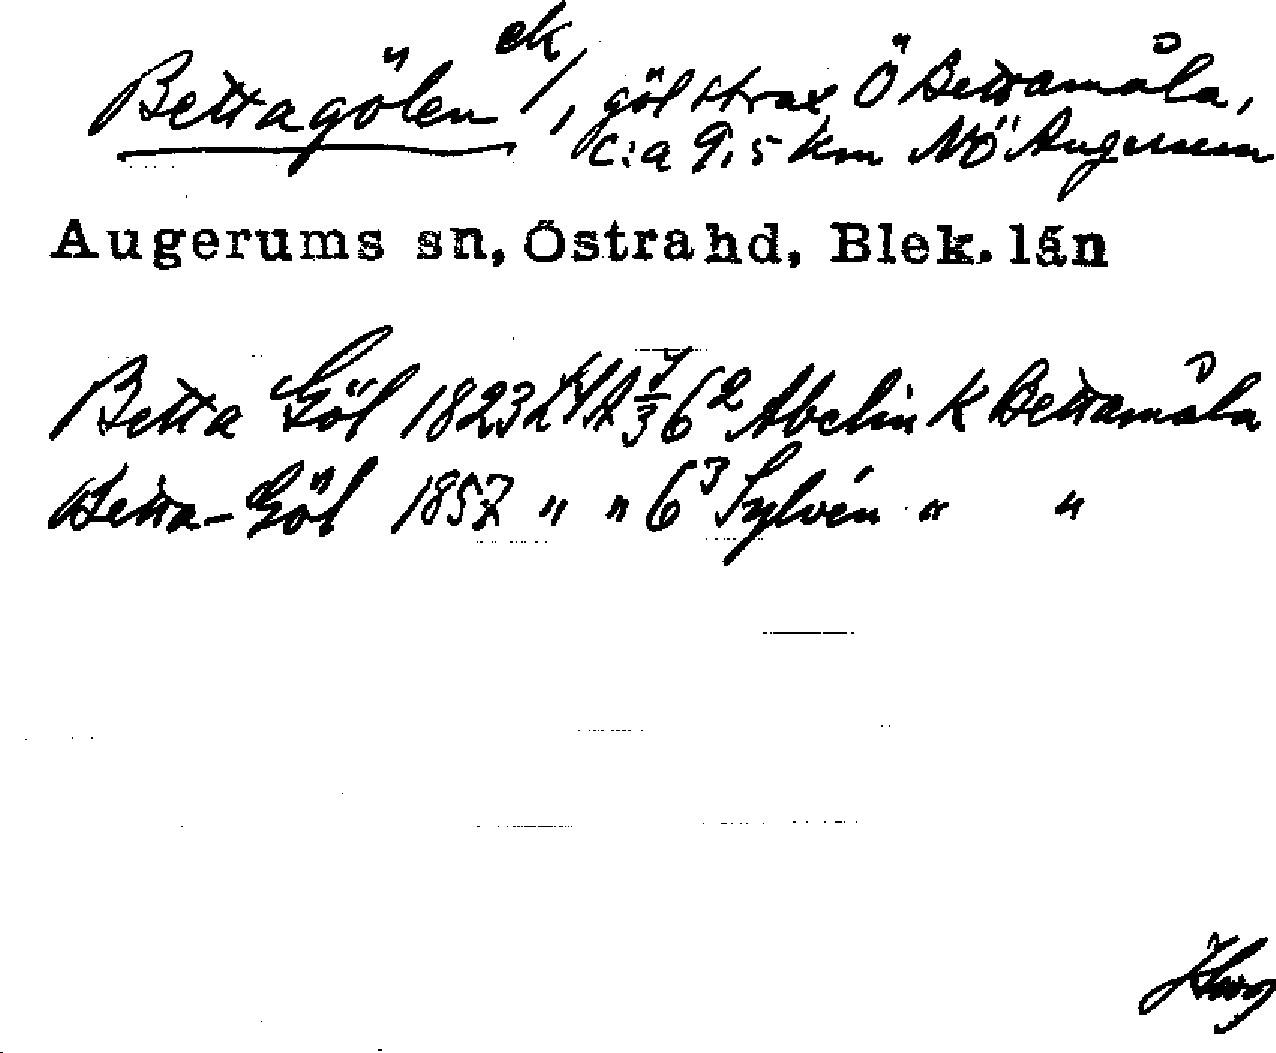 Bettagölen ek/, göl strax Ö Bettamåla,
c:a 9,5 km NÖ Augerum
Augerums sn, Östra hd, Blek. län
Betta Göl 1823 LSA 7/3 6² Abelin K Bettamåla
Betta-Göl 1857 " " 6³ Sylvén " "